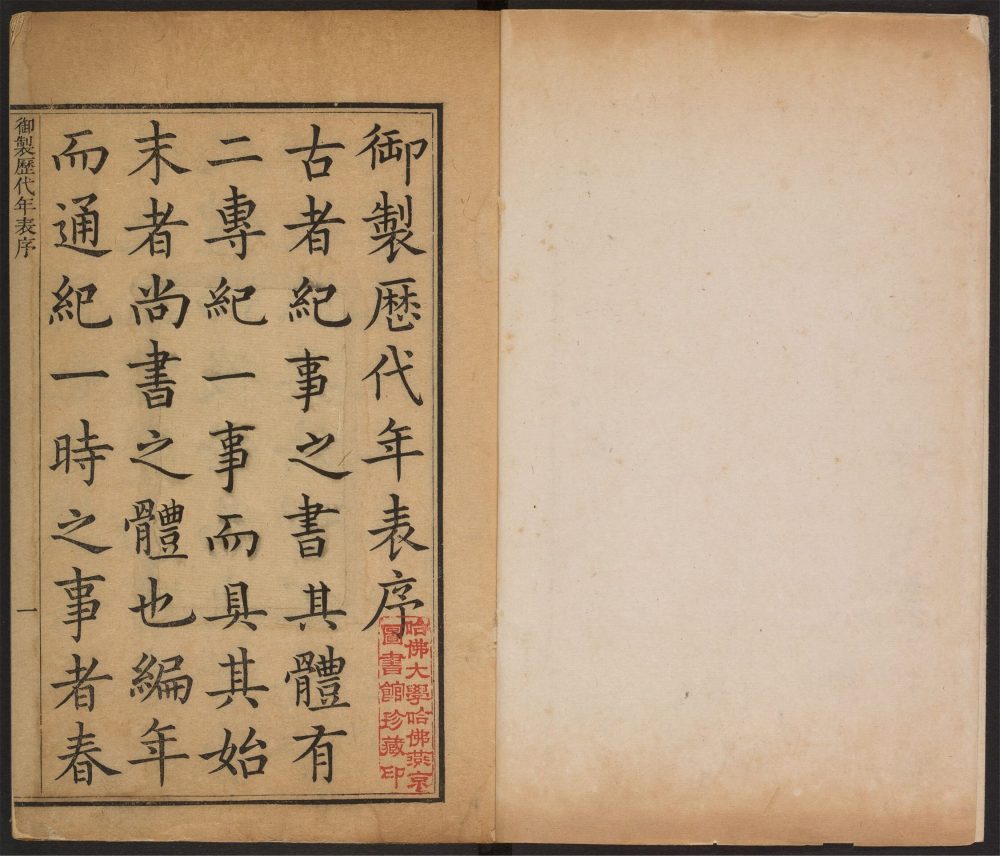 御製歷代年表序
古者紀事之書其體有
二專紀一事而具其始
末者尚書之體也編年
而通紀一時之事者春
御製歷代年表序
一
哈佛大學哈佛燕京
圖書館珍藏印